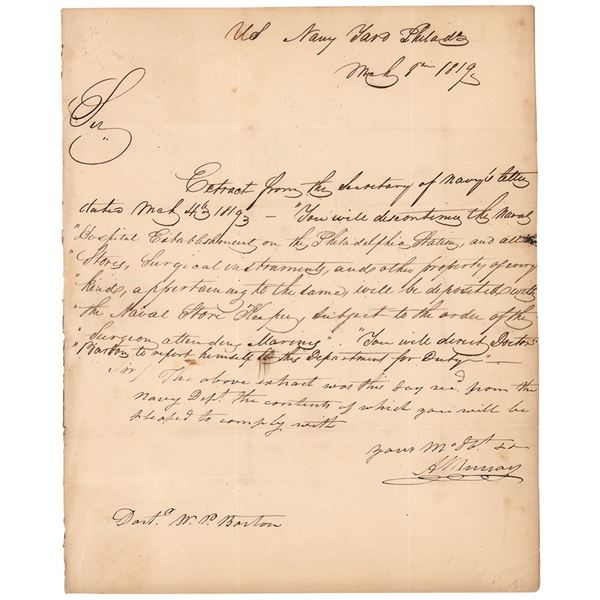 US Navy Yard Philada
Mch 8th 1819
Sir,
Extract from the Secretary of Navy's letter
dated Mch 4th 1819 — "You will discontinue the Naval
"Hospital Establishment on the Philadelphia Station, and all the
"Stores, Surgical instruments, and other property of every
"kind, appertaining to the same, will be deposited with
"the Naval Store Keeper, subject to the order of the
"Surgeon attending Marines". "You will direct Doctor
"Barton to report himself to this Department for Duty" —
Sir/ The above extract was this day recd from the
Navy Dept the contents of which you will be
pleased to comply with
your Mo Obt
A Murray
W. P. Barton